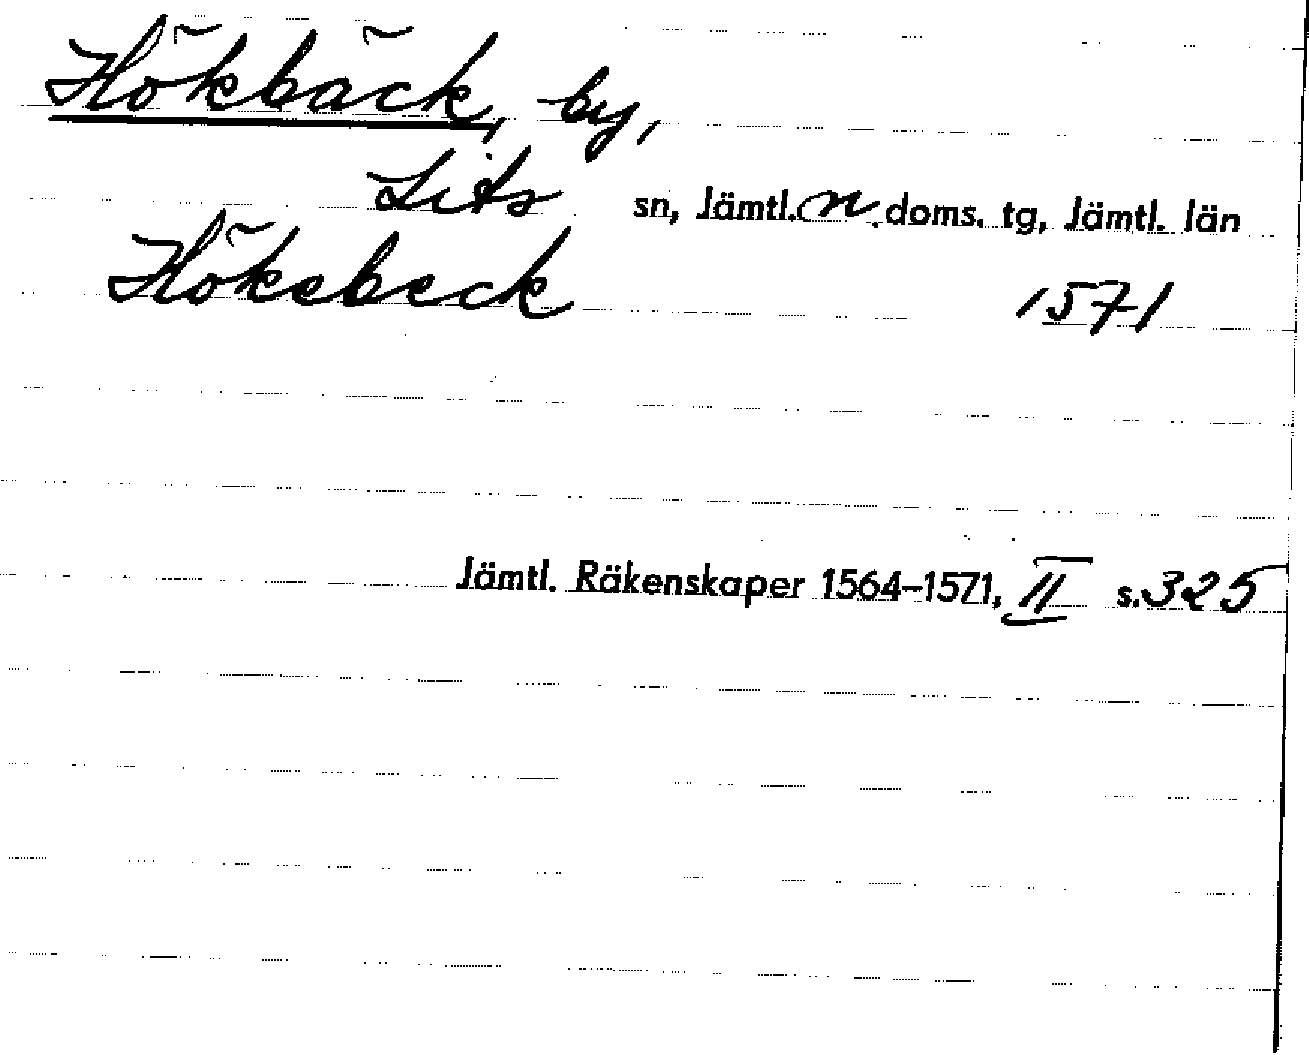 Hökbäck, by,
Lits sn, Jämtl. n. doms. tg, Jämtl. län
Hökebeck 1571
Jämtl. Räkenskaper 1564–1571, II s. 325